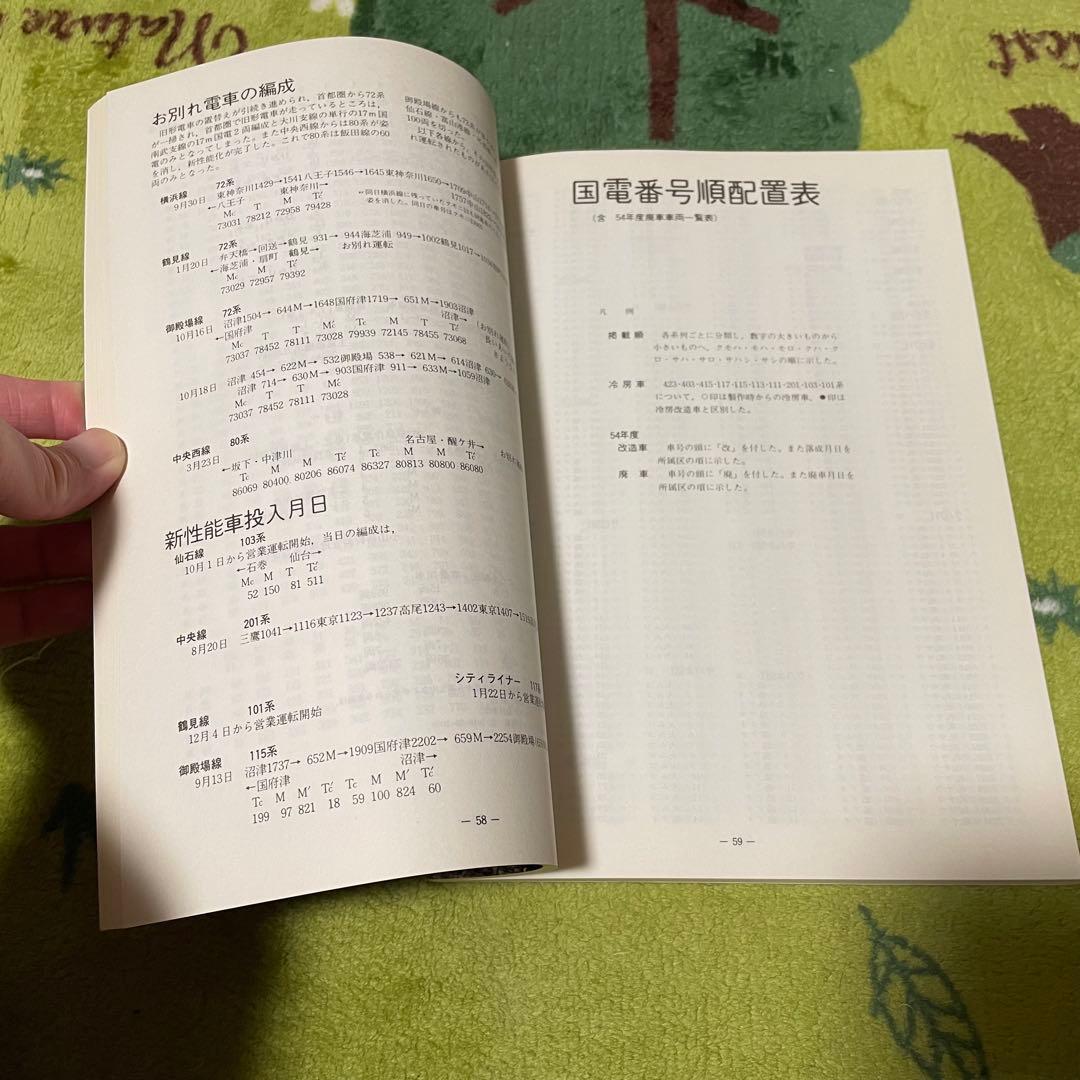 Nature
お別れ電車の編成
旧形電車の置替えが引続き進められ，首都圏から72系
が一掃され，首都圏で旧形電車が走っているところは，
南武支線の17m国電2両編成と大川支線の単行の17m国
電のみとなってしまった。また中央西線からは80系が姿
を消し，新性能化が完了した。これで80系は飯田線の60
両のみとなった。
御殿場線からも72系が
仙石線・富山港線
100両を切った。
以下各線から
れ運転されたものが
横浜線 72系
9月30日 東神奈川1429→1541八王子1546→1645東神奈川1650→1709中山
←八王子 東神奈川→
Mc M T Tć
73031 78212 72958 79428
鶴見線 72系
1月20日 弁天橋→回送→鶴見 931→ 944海芝浦 949→1002鶴見1017→
←海芝浦・扇町 鶴見→ お別れ運転
Mc M Tć
73029 72957 79392
御殿場線 72系
10月16日 沼津1504→ 644M→1648国府津1719→ 651M→1903沼津
←国府津 沼津→
Mc T T Mć Tć M T Mć
73037 78452 78111 73028 79939 72145 78455 73068
10月18日 沼津 454→ 622M→ 532御殿場 538→ 621M→ 614沼津 630→
沼津 714→ 630M→ 903国府津 911→ 633M→1059沼津
Mc T T Mć
73037 78452 78111 73028
中央西線 80系
3月23日 ←坂下・中津川 名古屋・醒ケ井→
Tc M M Tć Tc M M Tć
86069 80400 80206 86074 86327 80813 80800 86080
新性能車投入月日
仙石線 103系
10月1日から営業運転開始，当日の編成は，
←石巻 仙台→
Mc M T Tć
52 150 81 511
中央線 201系
8月20日 三鷹1041→1116東京1123→1237高尾1243→1402東京1407→
シティライナー 117系
1月22日から営業
鶴見線 101系
12月4日から営業運転開始
御殿場線 115系
9月13日 沼津1737→ 652M→1909国府津2202→ 659M→2254御殿場
←国府津 沼津→
Tc M M′ Tć Tc M M′ Tć
199 97 821 18 59 100 824 60
— 58 —
国電番号順配置表
（含 54年度廃車車両一覧表）
凡 例
掲載順 各系列ごとに分類し，数字の大きいものから
小さいものへ，クモハ・モハ・モロ・クハ・ク
ロ・サハ・サロ・サハシ・サシの順に示した。
冷房車 423・403・415・117・115・113・111・201・103・101系
について，○印は製作時からの冷房車，●印は
冷房改造車と区別した。
54年度
改造車 車号の頭に「改」を付した。また落成月日を
所属区の項に示した。
廃 車 車号の頭に「廃」を付した。また廃車月日を
所属区の項に示した。
— 59 —